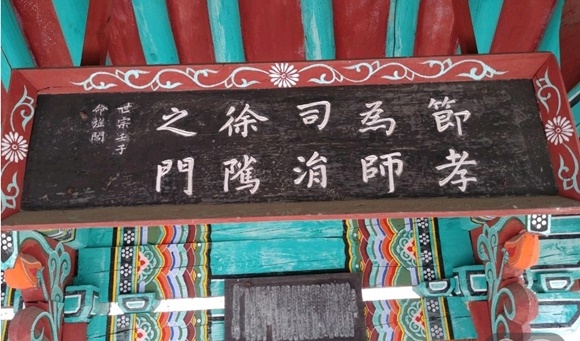 節孝
為師
司涓
徐隲
之門
世宗壬子
命旌閭